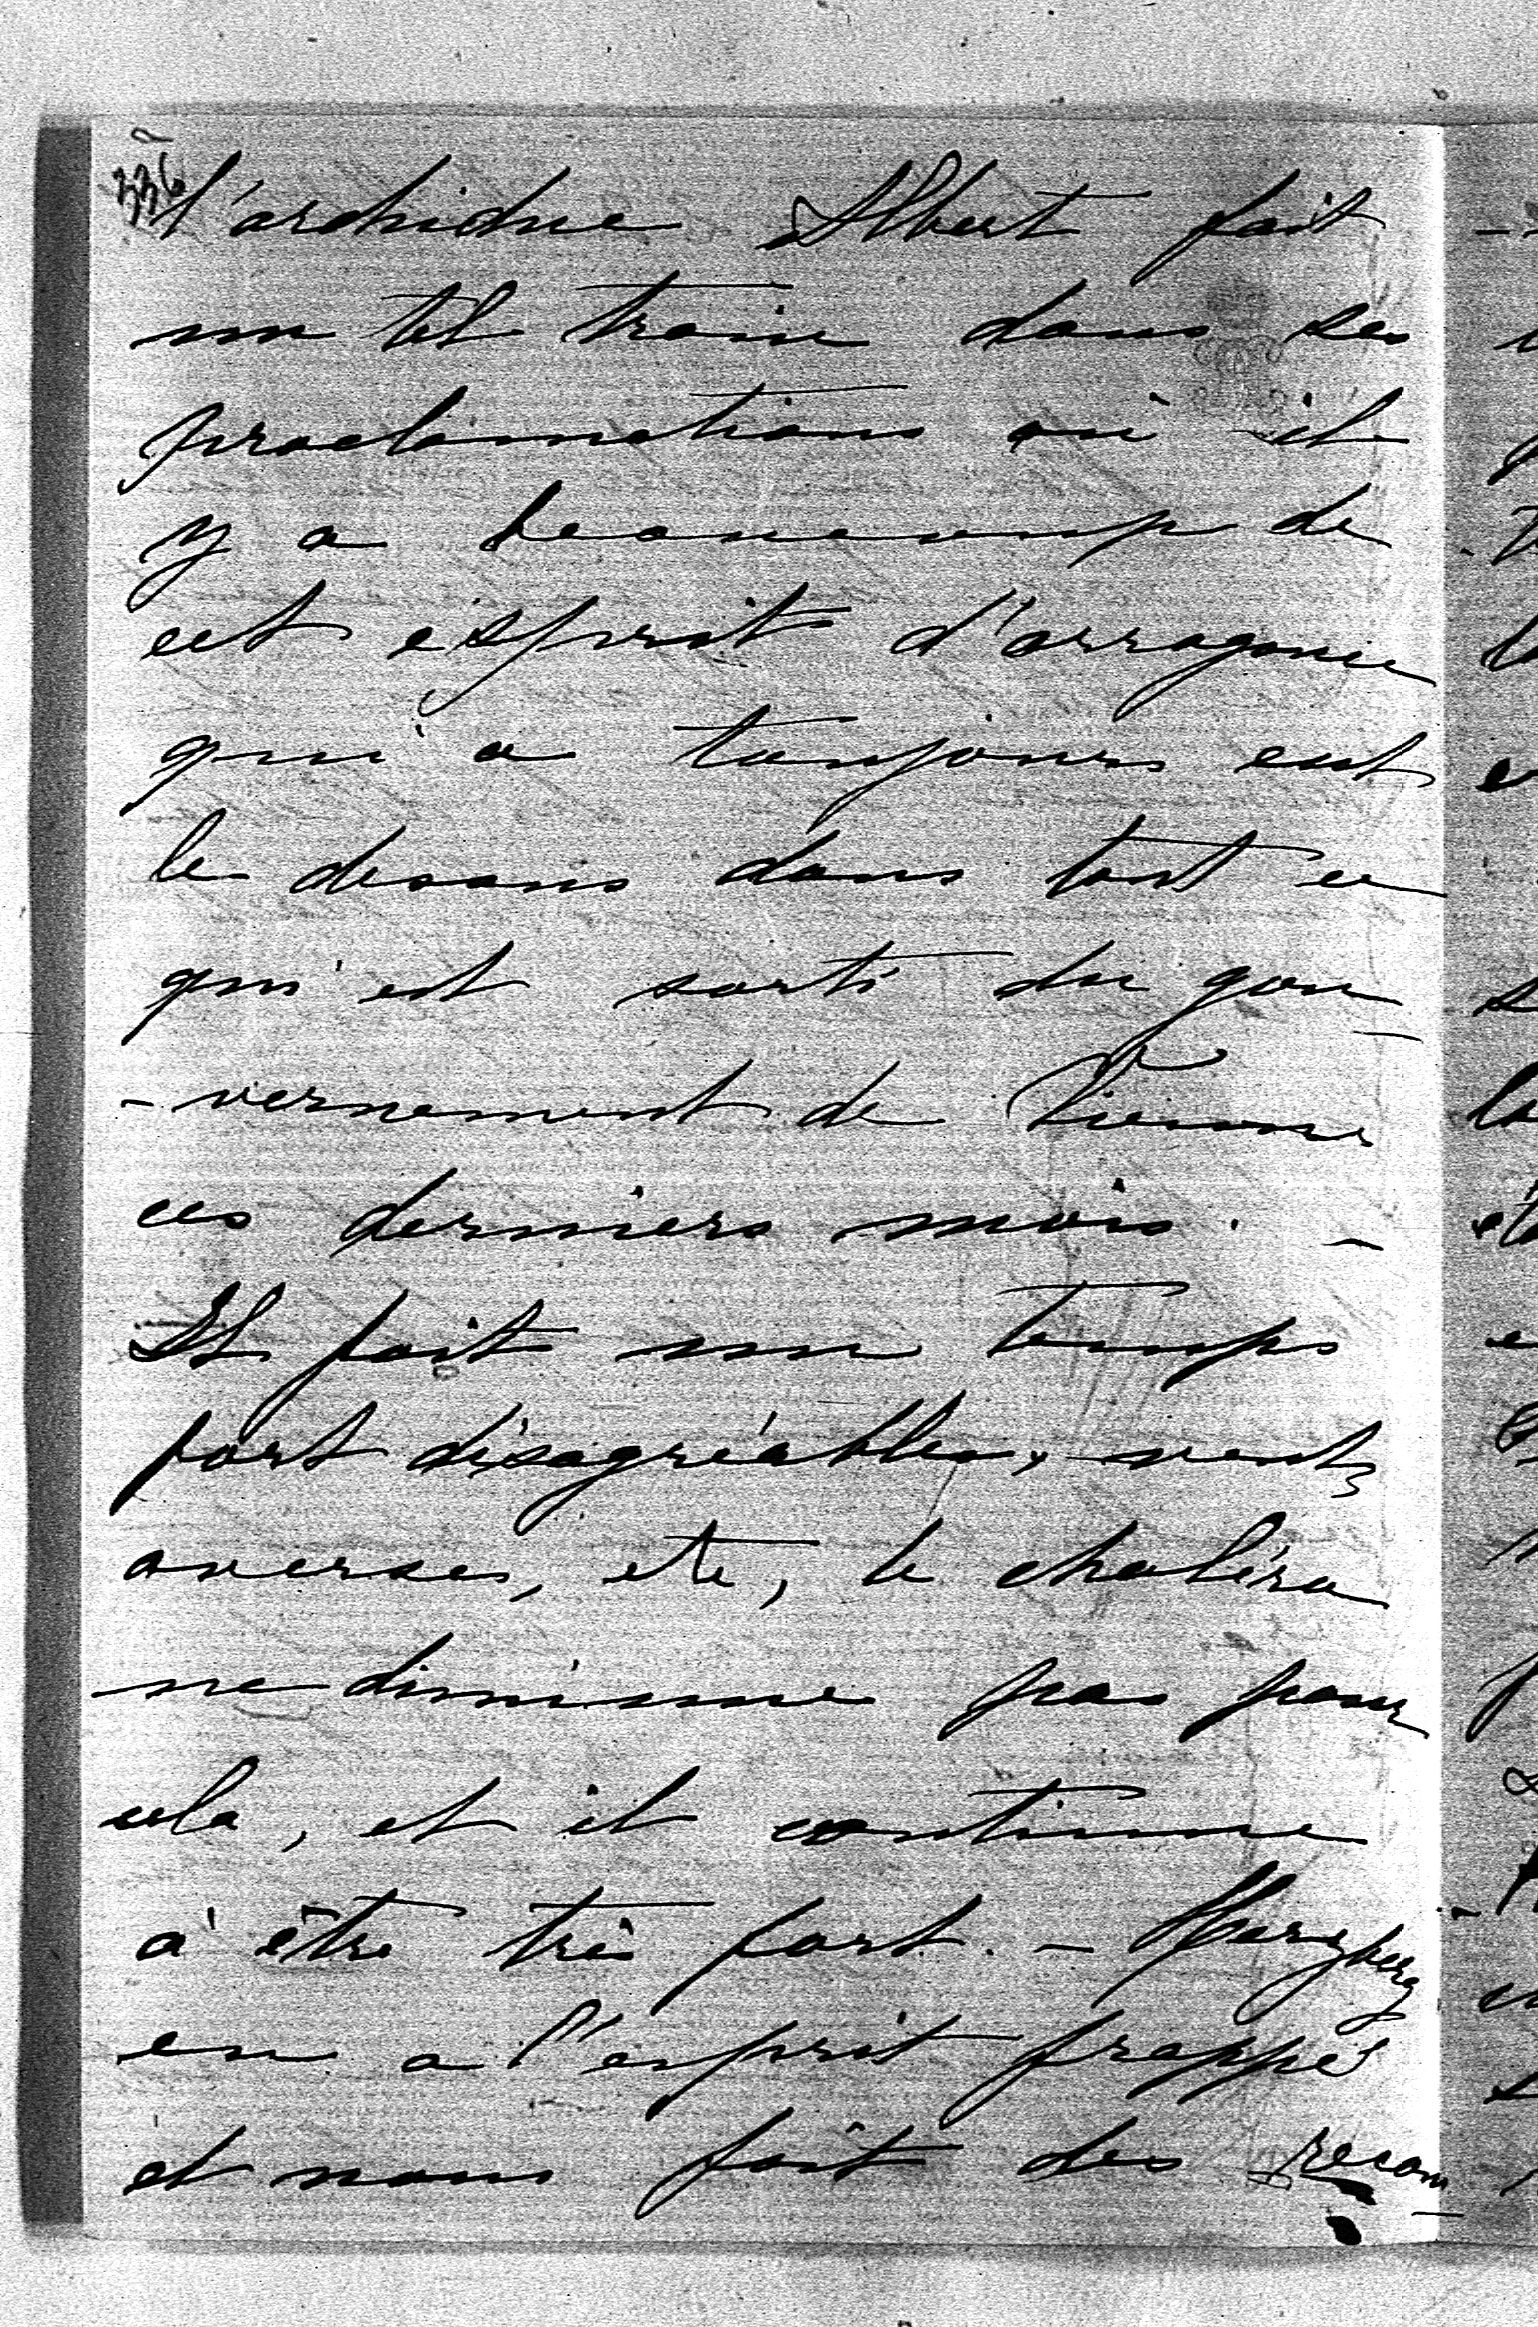 336
l'archiduc Albert fait
un tel train dans ses
proclamations où il
y a beaucoup de
cet esprit d'arrogance
qui a toujours eut
le dessus dans tout ce
qui est sorti du gou-
-vernement de Vienne
ces derniers mois. -
Il fait un temps
fort désagréable, vent,
averses, etc, le choléra
ne diminue pas pour
cela, et il continue
à être très fort. - Herzberg
en a l'esprit frappé
et nous fait des recom-